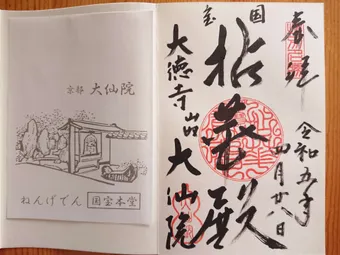 京都 大仙院
ねんげでん 国宝本堂
奉拝
令和五年
四月廿八日
国宝
拈華殿
大徳寺山内
大仙院